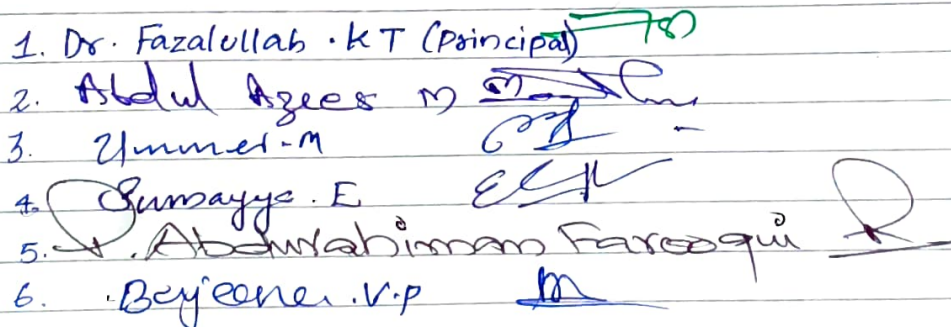 1. Dr. Fazalullah .K T (Principal)
2. Abdul Azees M
3. Ummer-M
4. Sumayya. E
5. P. Abdurahiman Farooqui
6. V.P